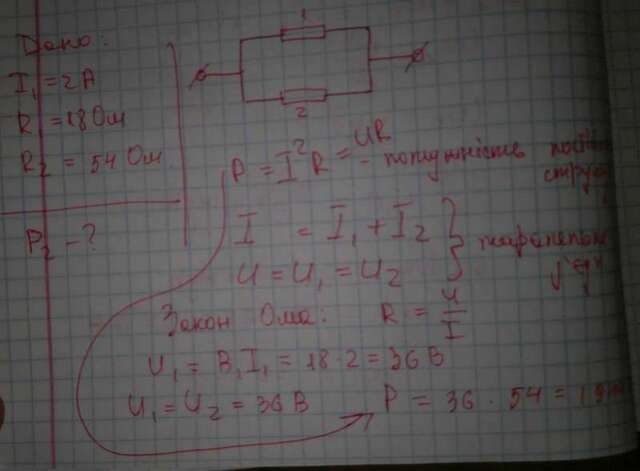 Дано:
I₁ = 2 А
R = 18 Ом
R₂ = 54 Ом
P₂ - ?
1
2
P = I²R = UR - потужність
струму
I = I₁ + I₂
U = U₁ = U₂
Закон Ома: R = U/I
U₁ = R₁I₁ = 18 · 2 = 36 В
U₁ = U₂ = 36 В P = 36 · 54 =